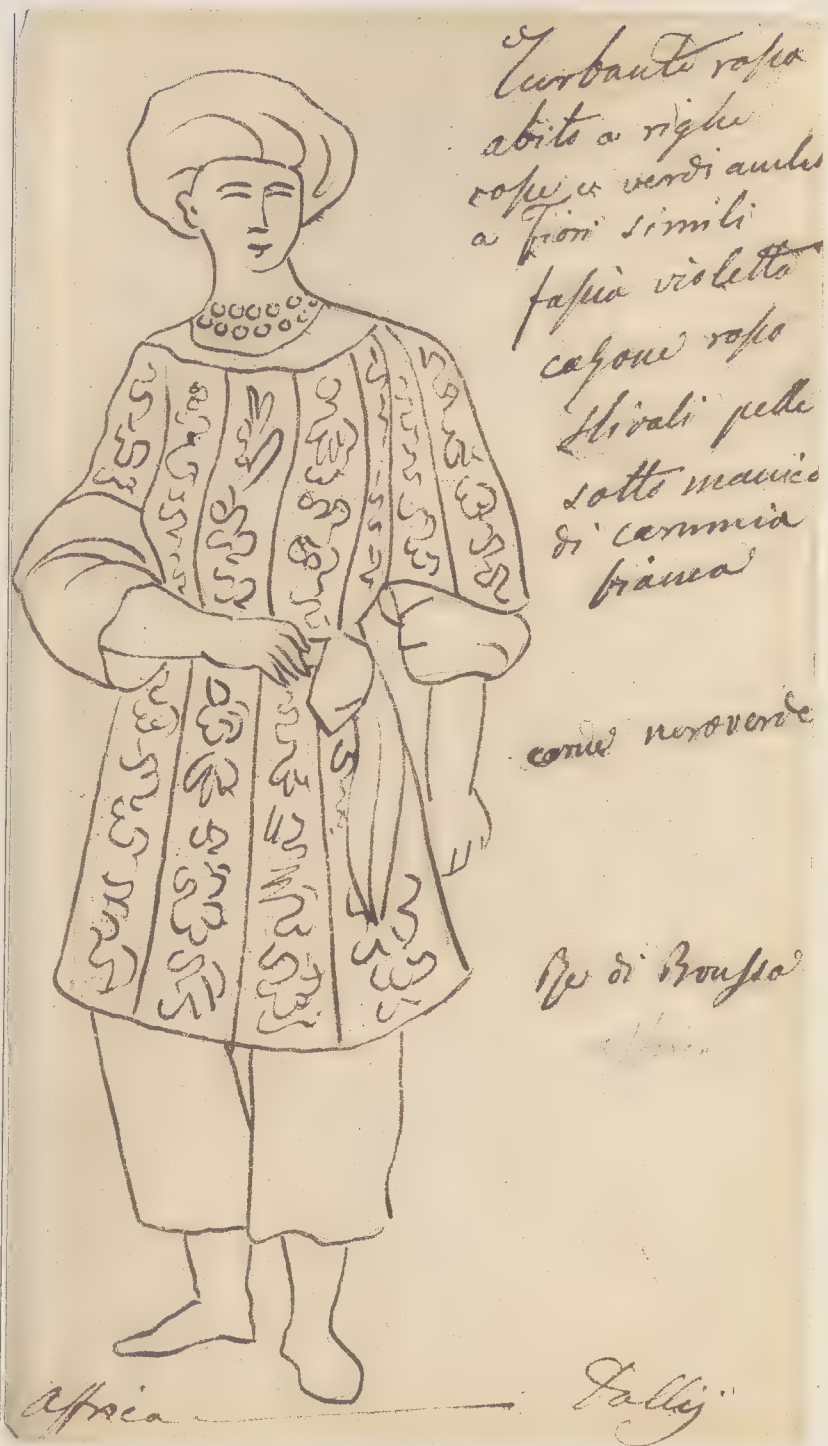 Turbante rosso
abito a righe
rosse e verdi anche
a Fiori simili
fascia violetta
calzone rosso
stivali pelle
sotto manica
di camicia
bianca
carne neroverde
Re di Boussa
Affrica